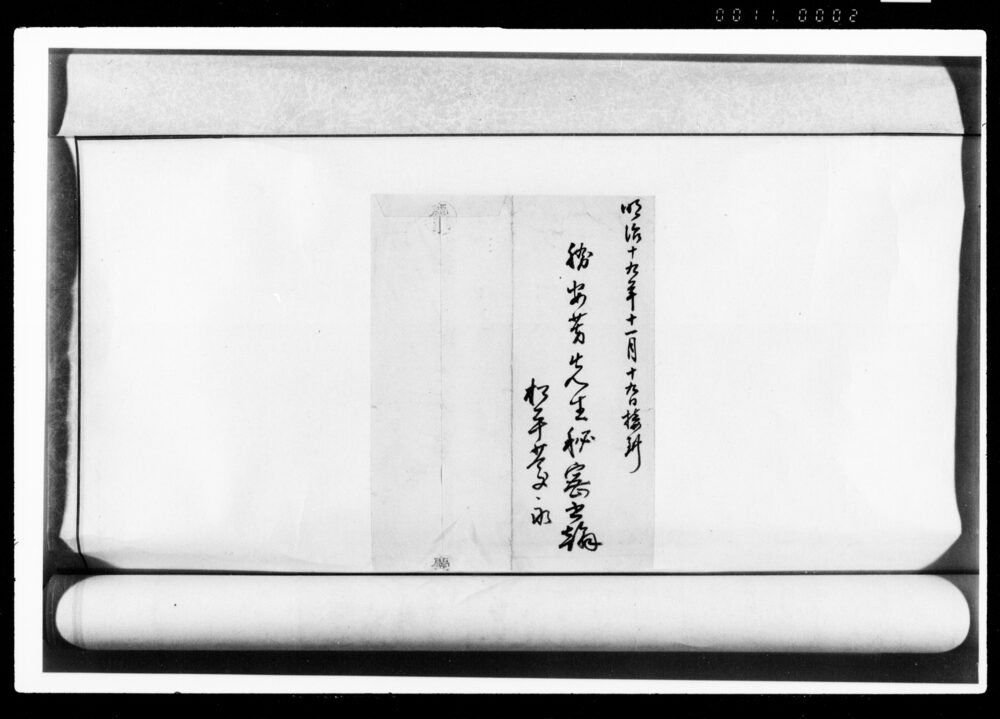 0011. 0002
明治十九年十一月十九日接到
勝安芳先生秘密書翰
松平慶永